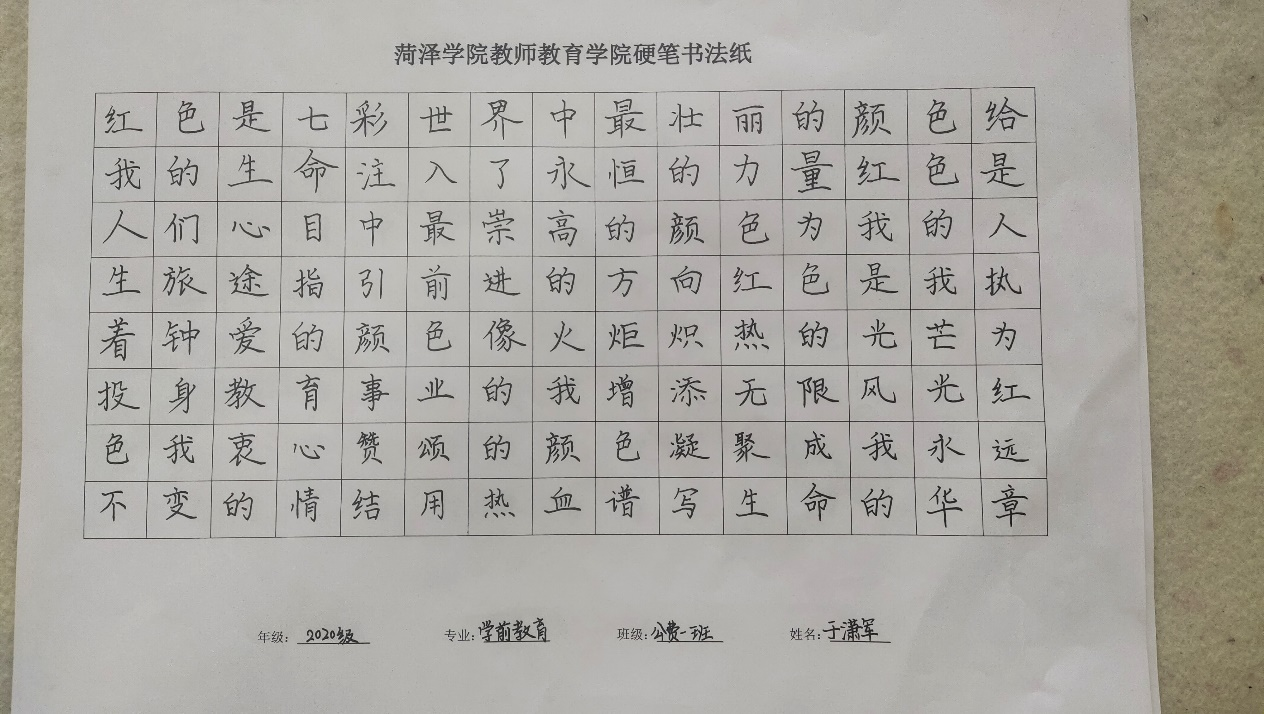 菏泽学院教师教育学院硬笔书法纸
红色是七彩世界中最壮丽的颜色给
我的生命注入了永恒的力量红色是
人们心目中最崇高的颜色为我的人
生旅途指引前进的方向红色是我执
着钟爱的颜色像火炬炽热的光芒为
投身教育事业的我增添无限风光红
色我衷心赞颂的颜色凝聚成我永远
不变的情结用热血谱写生命的华章
年级：2020级 专业：学前教育 班级：公费一班 姓名：于潇军